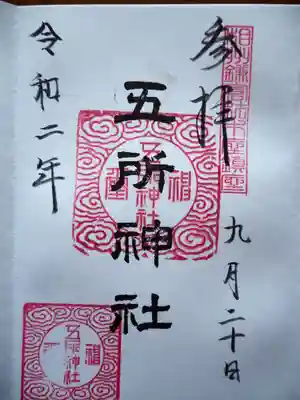 参拝
九月二十日
五所神社
五所神社
五所神社
令和二年